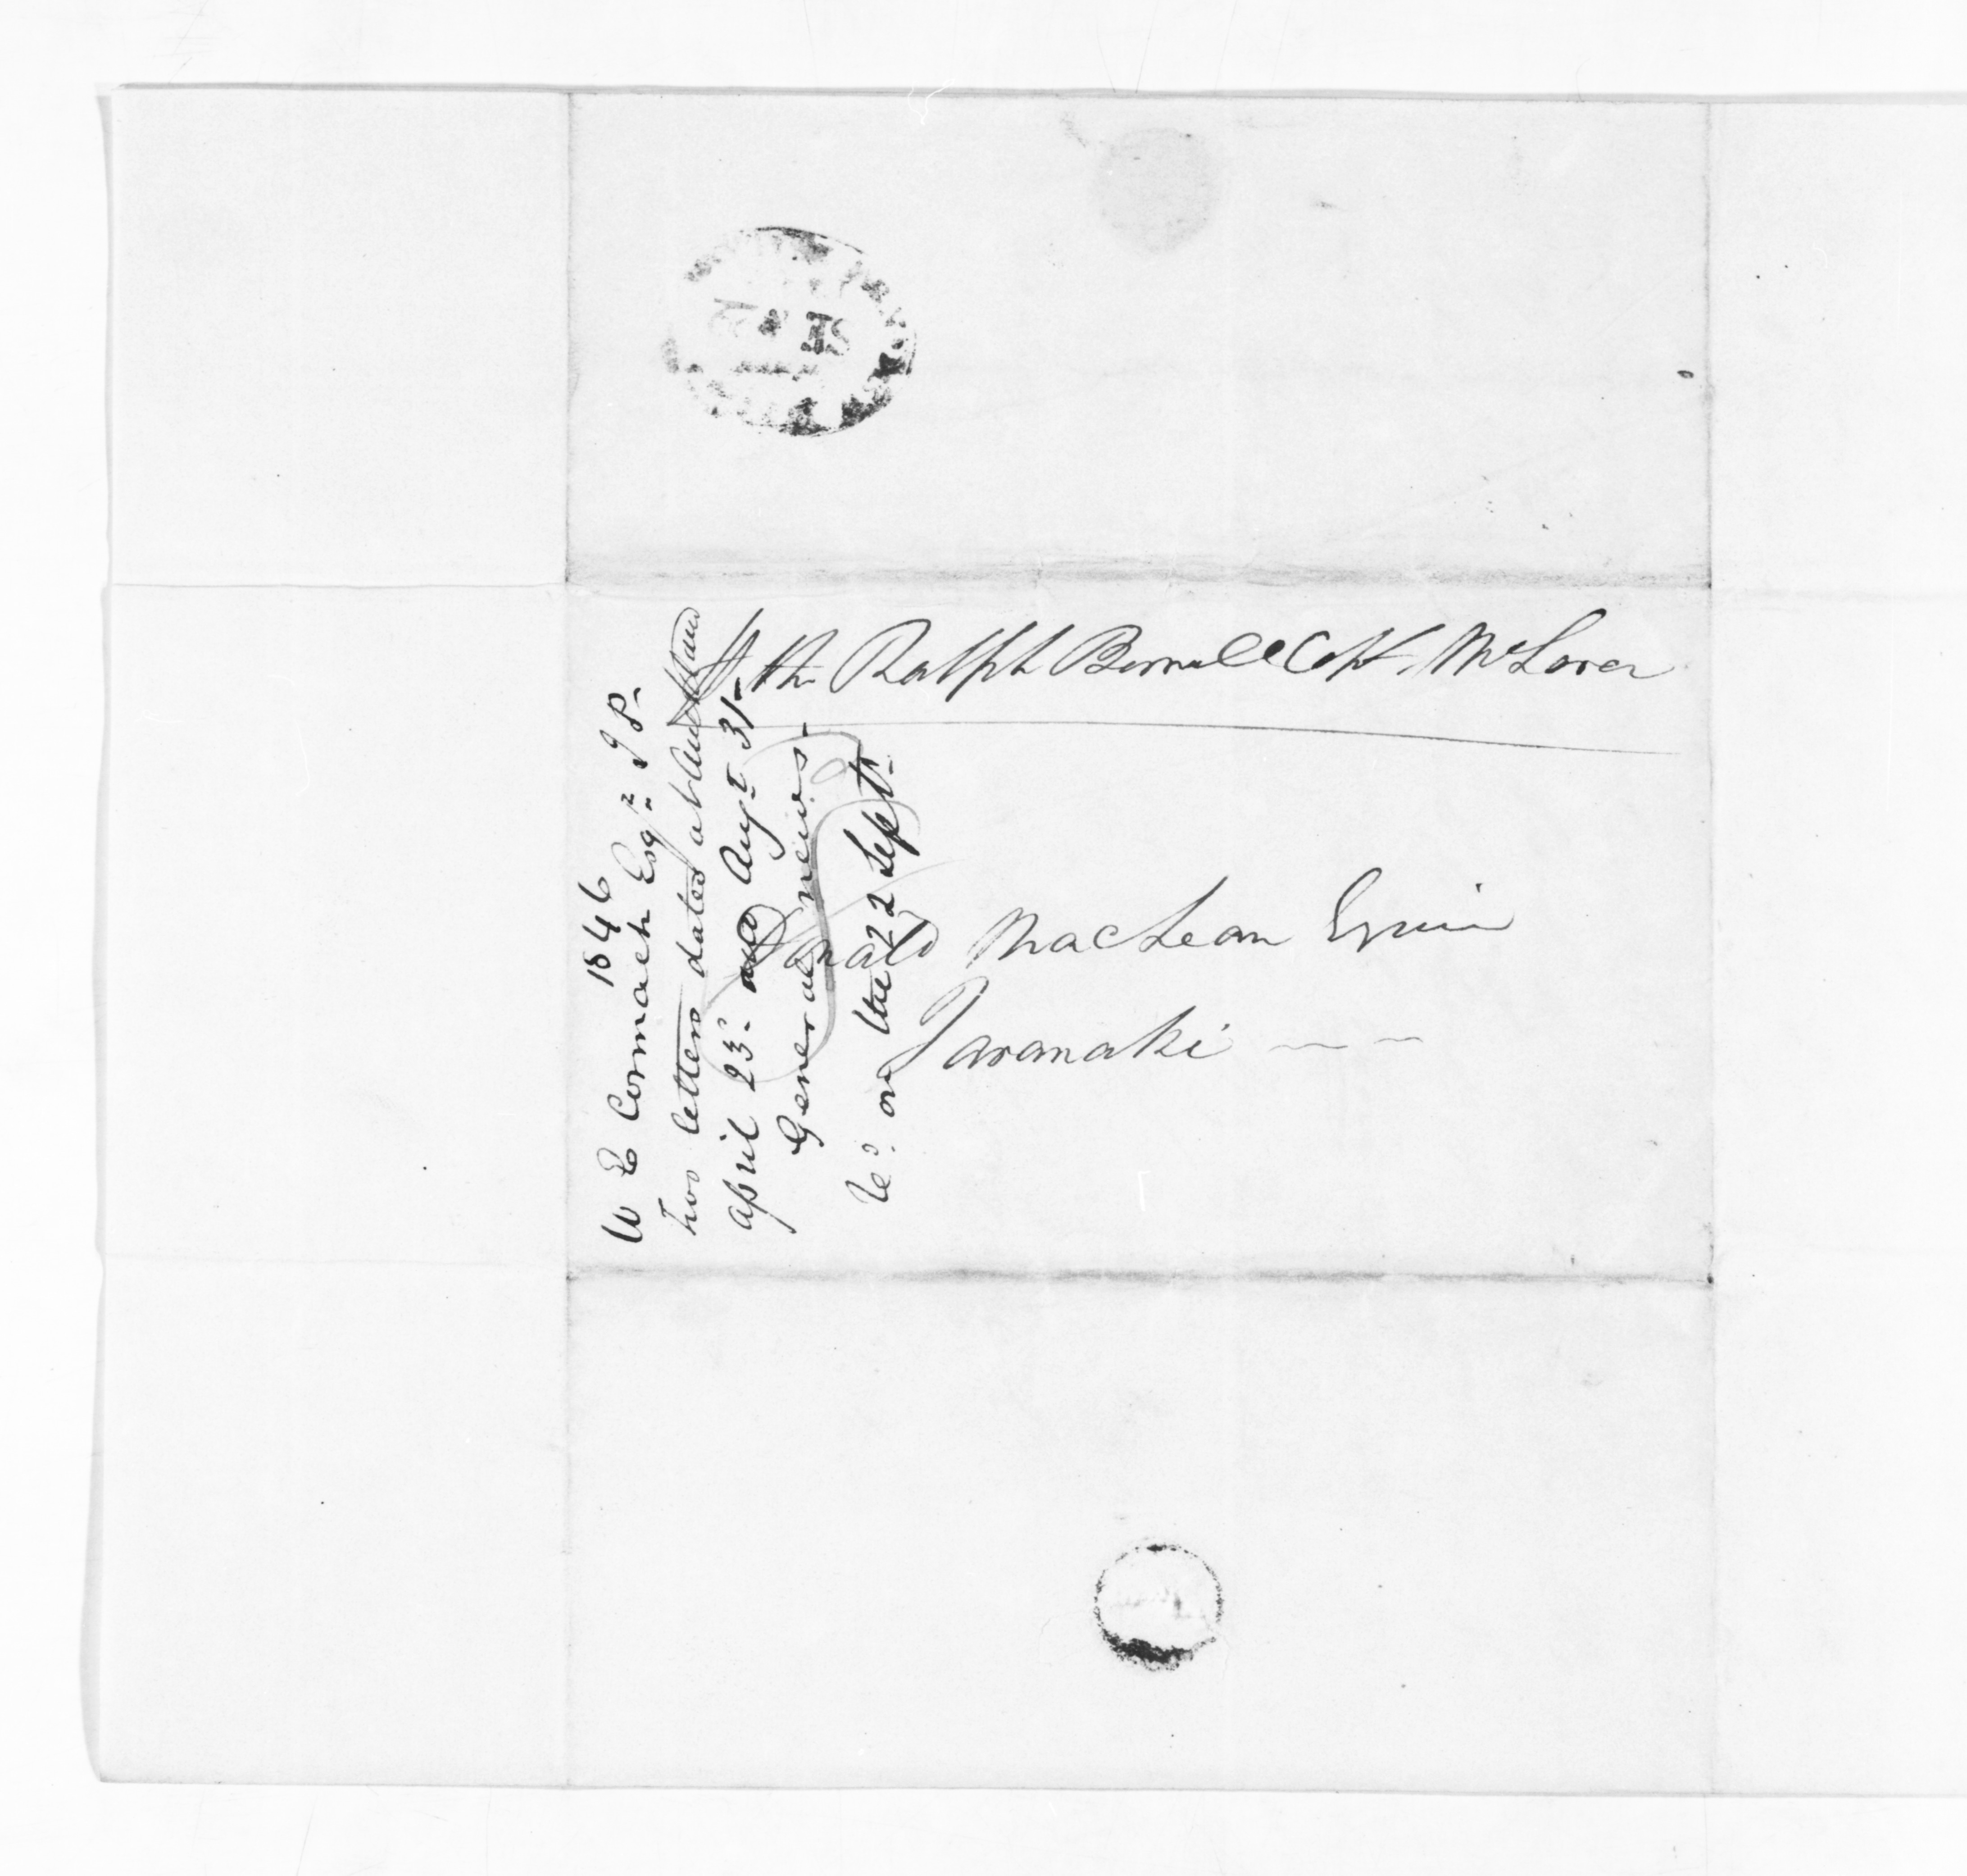 p the Ralph Bernall Capt McLaren
Donald MacLean Esquire
Taranaki
1846
W E Cormack Esqr. J P.
Two letters dated at Auckland
April 23d. and Augt 31-
General news -
Recd. on the 22 Sept.